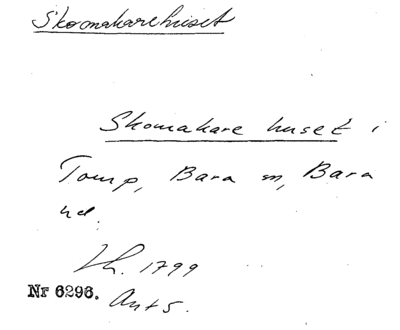 Skomakarehuset
Skomakare huset i
Torup, Bara sn, Bara
hd.
Lh. 1799
Nr 6296. Ant 5.